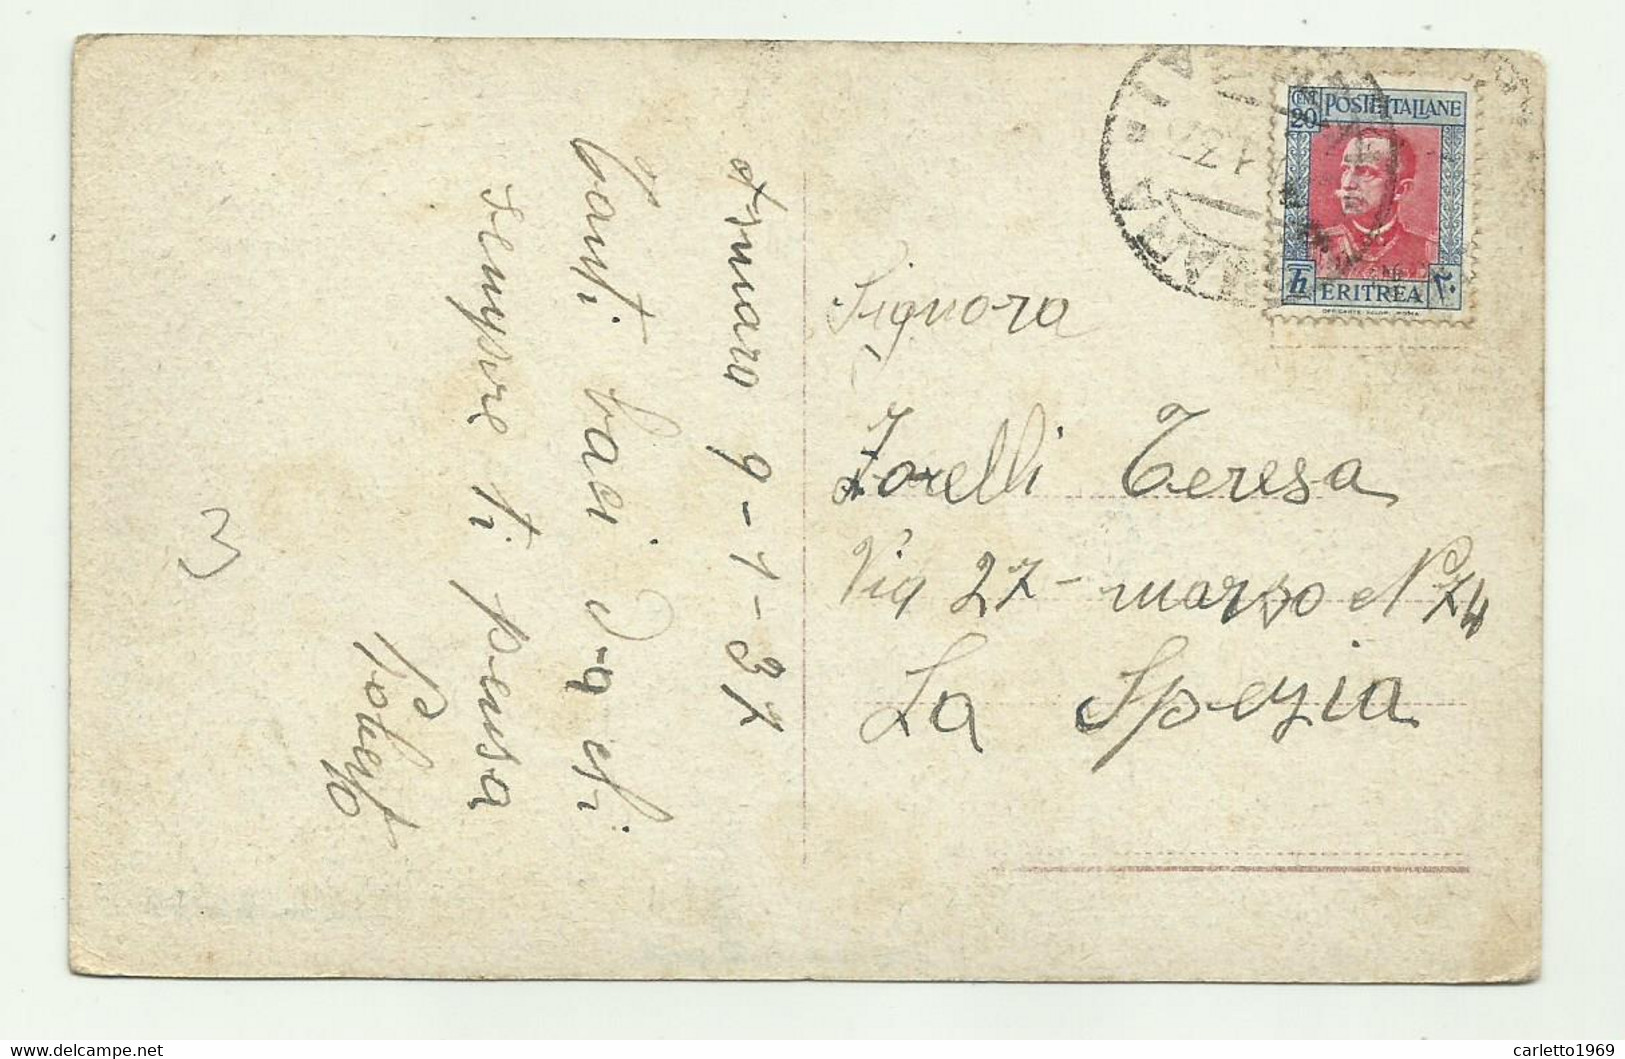 Asmara 9-1-37
Tanti baci da chi
sempre ti pensa
Signora
Zorelli Teresa
Via 27 - marzo N 74
La Spezia
CENT 20 POSTE ITALIANE
ERITREA ٢٠
3
carletto1969
delcampe.net